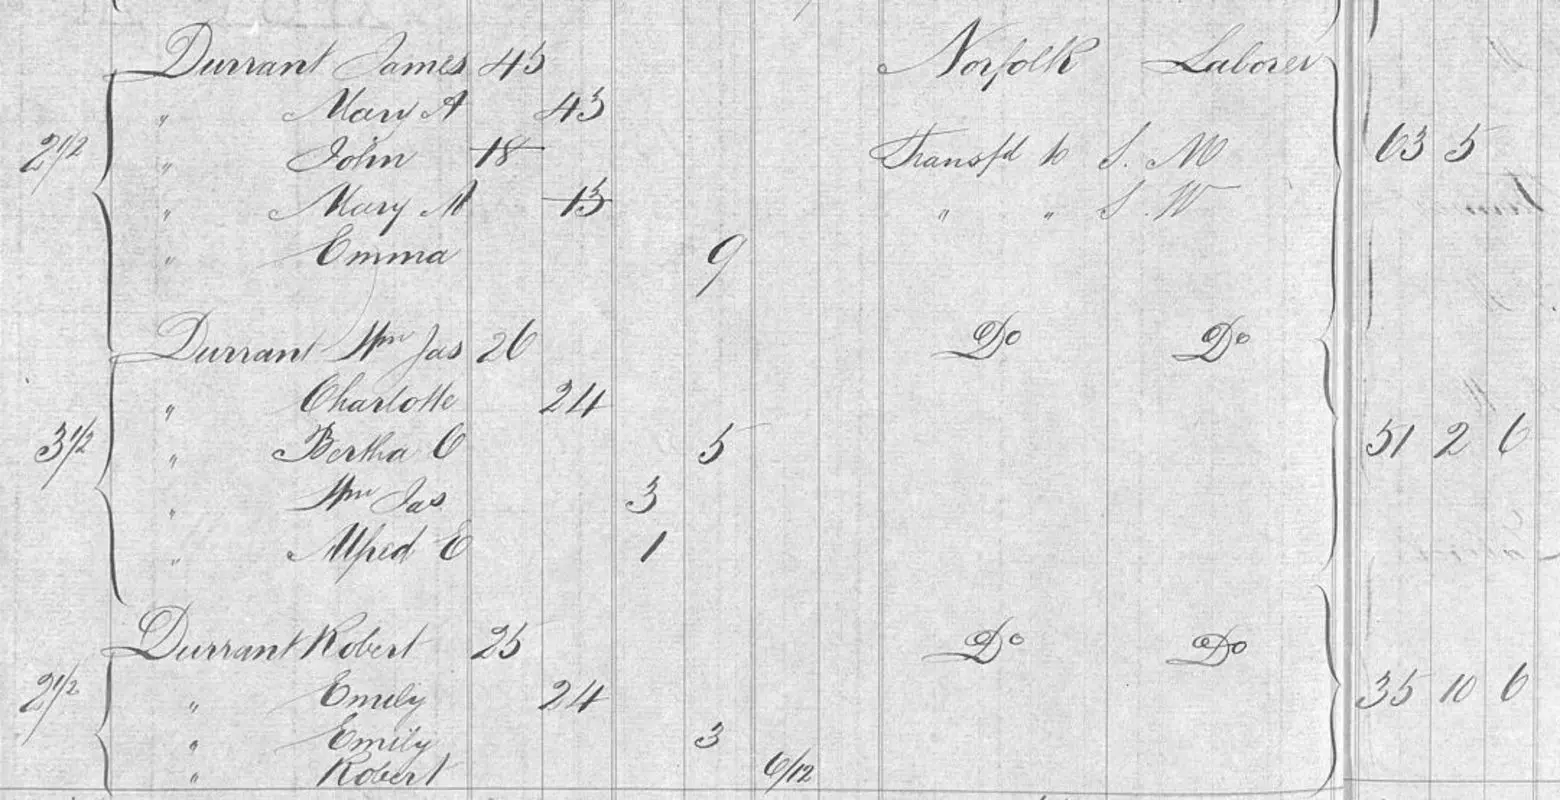 Durrant James 45 Norfolk Laborer
" Mary A 43
2 1/2 " John 18 Transfd to S. M 63 5
" Mary M 15 " " S. W
" Emma 9
Durrant Wm Jas 26 Do Do
" Charlotte 24
3 1/2 " Bertha C 5 51 2 6
" Wm Jas 3
" Alfred E 1
Durrant Robert 25 Do Do
2 1/2 " Emily 24 35 10 6
" Emily 3
" Robert 6/12